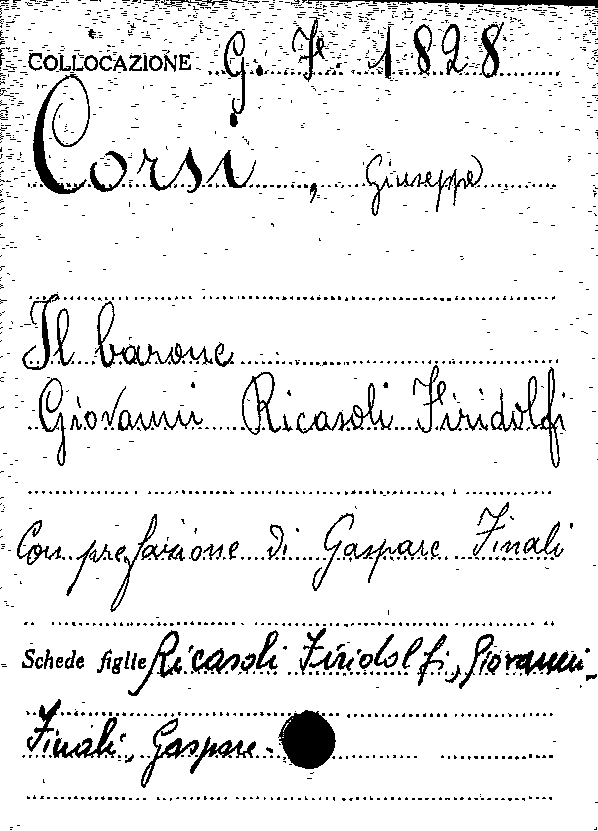 COLLOCAZIONE G. F. 1828
Corsi, Giuseppe
Il barone
Giovanni Ricasoli Firidolfi
Con prefazione di Gaspare Finali
Schede figlie Ricasoli Firidolfi, Giovanni-
Finali, Gaspare.